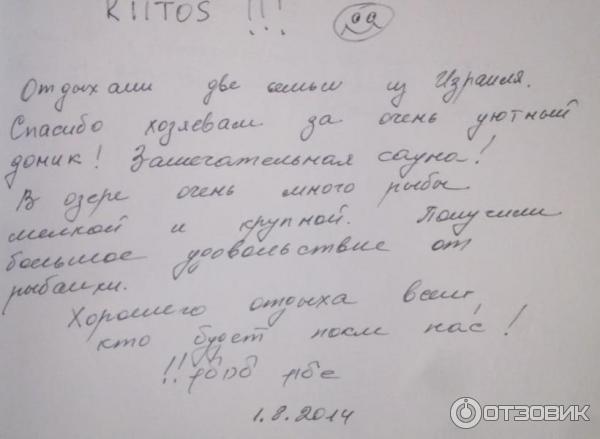 KIITOS !!!
Отдыхали две семьи из Израиля.
Спасибо хозяевам за очень уютный
домик! Замечательная сауна!
В озере очень много рыбы
мелкой и крупной. Получили
большое удовольствие от
рыбалки.
Хорошего отдыха всем,
кто будет после нас!
1.8.2014
ОТЗОВИК